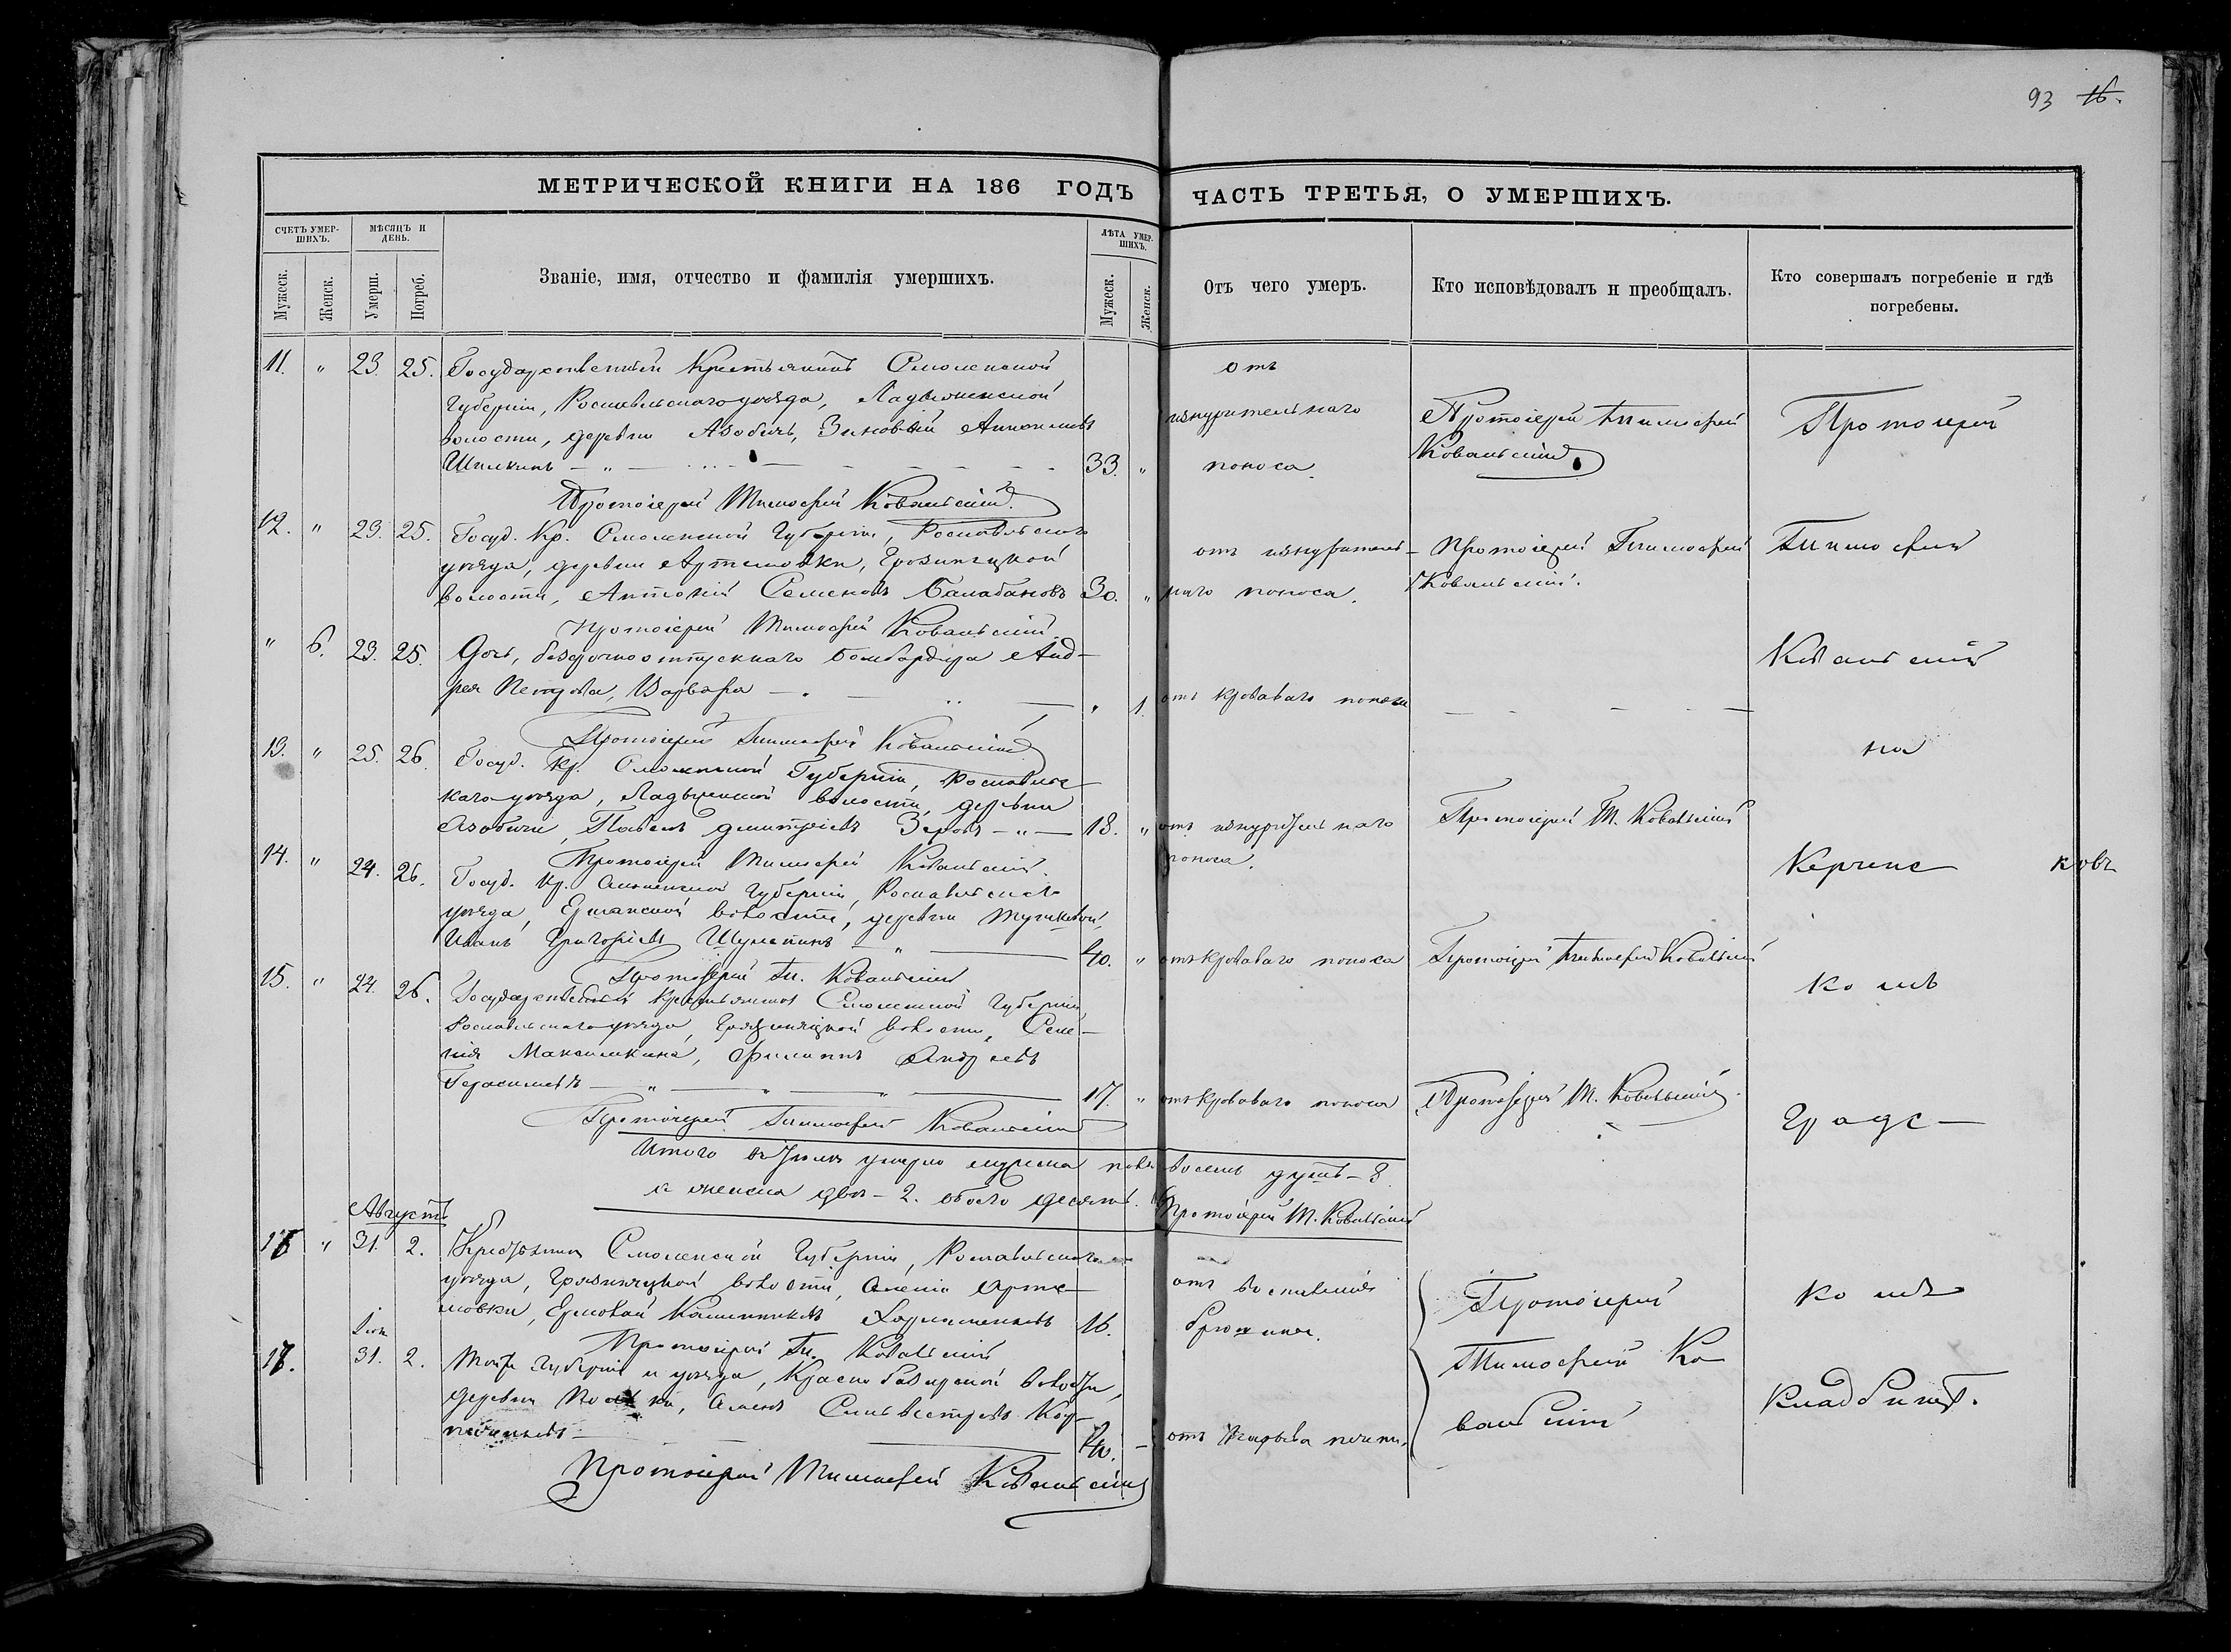 93 16.
МЕТРИЧЕСКОЙ КНИГИ НА 186 ГОДЪ ЧАСТЬ ТРЕТЬЯ, О УМЕРШИХЪ.
СЧЕТЪ УМЕРШИХЪ.
МѢСЯЦЪ И ДЕНЬ.
Званіе, имя, отчество и фамилія умершихъ.
ЛѢТА УМЕРШИХЪ.
Отъ чего умеръ.
Кто исповѣдовалъ и преобщалъ.
Кто совершалъ погребеніе и гдѣ погребены.
Мужеск. Женск. Умерш. Погреб. Мужеск. Женск.
11. " 23. 25. Государственный Крестьянинъ Смоленской отъ
Губерніи, Рославльскаго уѣзда, Ладыженской изнурительнаго Протоіерей Тимофей Протоіерей
волости, деревни Азобичь, Зиновій Антоновъ Ковальскій
33. " поноса.
Протоіерей Тимофей Ковальскій.
12. " 23. 25. Госуд. Кр. Смоленской Губерніи, Рославльскаго отъ изнуритель- Протоіерей Тимофей Тимофей
уѣзда, деревни Артемовки, волости, Антоній Семеновъ Балабановъ 30. " наго поноса. Ковальскій.
Протоіерей Тимофей Ковальскій.
" 6. 23. 25. Дочь, безсрочноотпускнаго Бомбардира Анд- Ковальскій
рея Петрова, Варвара " 1. отъ кроваваго поноса
Протоіерей Тимофей Ковальскій
13. " 25. 26. Госуд. Кр. Смоленской Губерніи, Рославльс- на
каго уѣзда, Ладыженской волости, деревни
Азобичи, Павелъ Дмитріевъ Зеровъ 18. " отъ изнурительнаго Протоіерей Т. Ковальскій
поноса.
Протоіерей Тимофей Ковальскій.
14. " 24. 26. Госуд. Кр. Смоленской Губерніи, Рославльскаго Керченс- ковъ
уѣзда, волости, деревни
Иванъ Григорьевъ 40. " отъ кроваваго поноса Протоіерей Тимофей Ковальскій
Протоіерей Ти. Ковальскій
15. " 24. 26. Государственный крестьянинъ Смоленской Губерніи, комъ
Рославльскаго уѣзда, волости, Селе-
нія Максимкина, Филиппъ Андреевъ
Герасимовъ 17. " отъ кроваваго поноса Протоіерей Т. Ковальскій.
Протоіерей Тимофей Ковальскій Градс-
Итого въ Іюлѣ умерло мужеска пола восемь душъ - 8.
а женска двѣ - 2. обоего десять. Протоіерей Т. Ковальскій
Августъ
" 31. 2. Крестьянинъ Смоленской Губерніи, Рославльскаго
уѣзда, волости, селенія Арте- отъ воспаленія Протоіерей комъ
мовки, 16. брюшины.
Протоіерей Ти. Ковальскій
31. 2. Той же Губерніи и уѣзда, волости, Тимофей Ко-
деревни Семенъ Сильвестровъ Кладбищѣ.
40. - отъ печени. вальскій
Протоіерей Тимофей Ковальскій